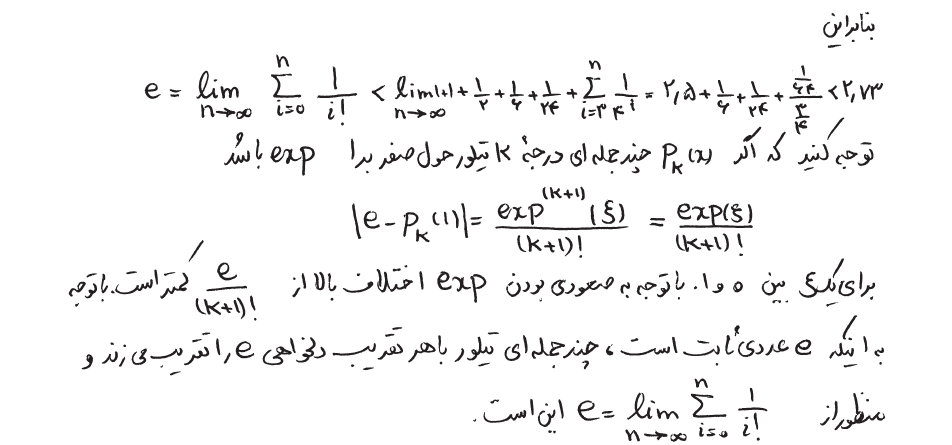 بنابراین
e = lim_{n→∞} ∑_{i=0}^{n} 1/i! < lim_{n→∞} 1+1+1/۲+1/۶+1/۲۴+∑_{i=۳}^{n} 1/۴^i = ۲٫۵+1/۶+1/۲۴+(1/۶۴)/(۳/۴) < ۲٫۷۳
توجه کنید که اگر P_k(x) چندجمله‌ای درجهٔ k تیلور حول صفر برا exp باشد
|e-P_k(1)| = exp^{(k+1)}(ξ)/(k+1)! = exp(ξ)/(k+1)!
برای یک ξ بین ۰ و ۱. با توجه به صعودی بودن exp اختلاف بالا از e/(k+1)! کمتر است. با توجه
به اینکه e عددی ثابت است، چندجمله‌ای تیلور با هر تقریب دلخواهی e را تقریب می‌زند و
منظور از e = lim_{n→∞} ∑_{i=0}^{n} 1/i! این است.